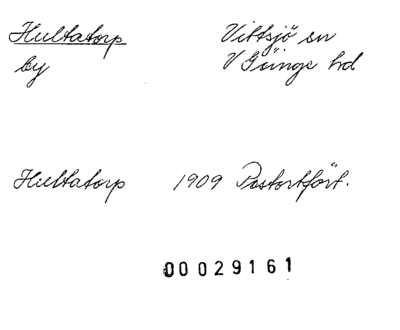 Hultatorp Vittsjö sn
by V Göinge hd
Hultatorp 1909 Postortfört.
00029161